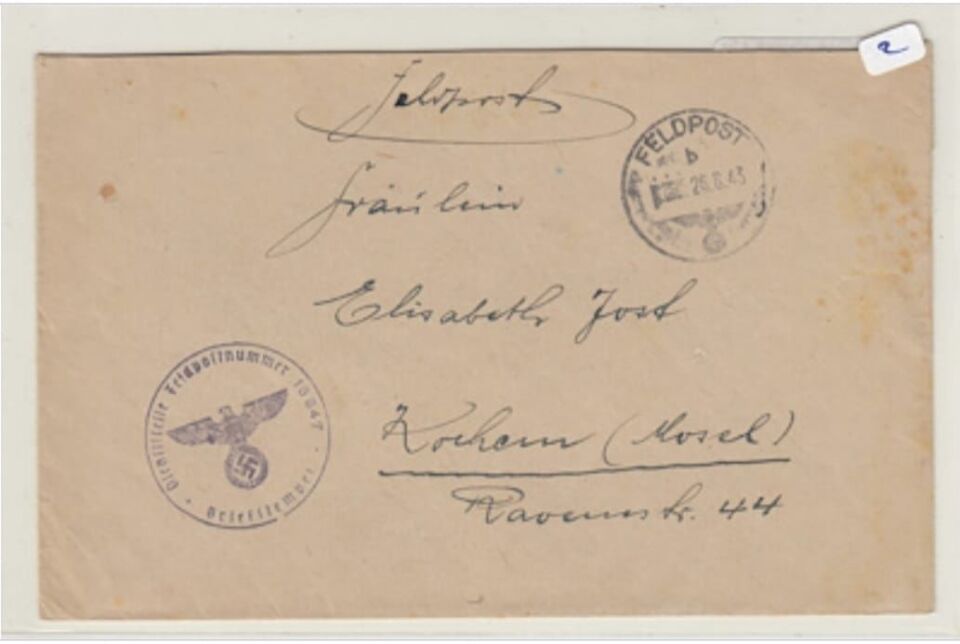 2
Feldpost
FELDPOST
b
26.8.43
Fräulein
Elisabeth Jost
Dienststelle Feldpostnummer
Briefstempel
Kochem (Mosel)
Ravenestr. 44